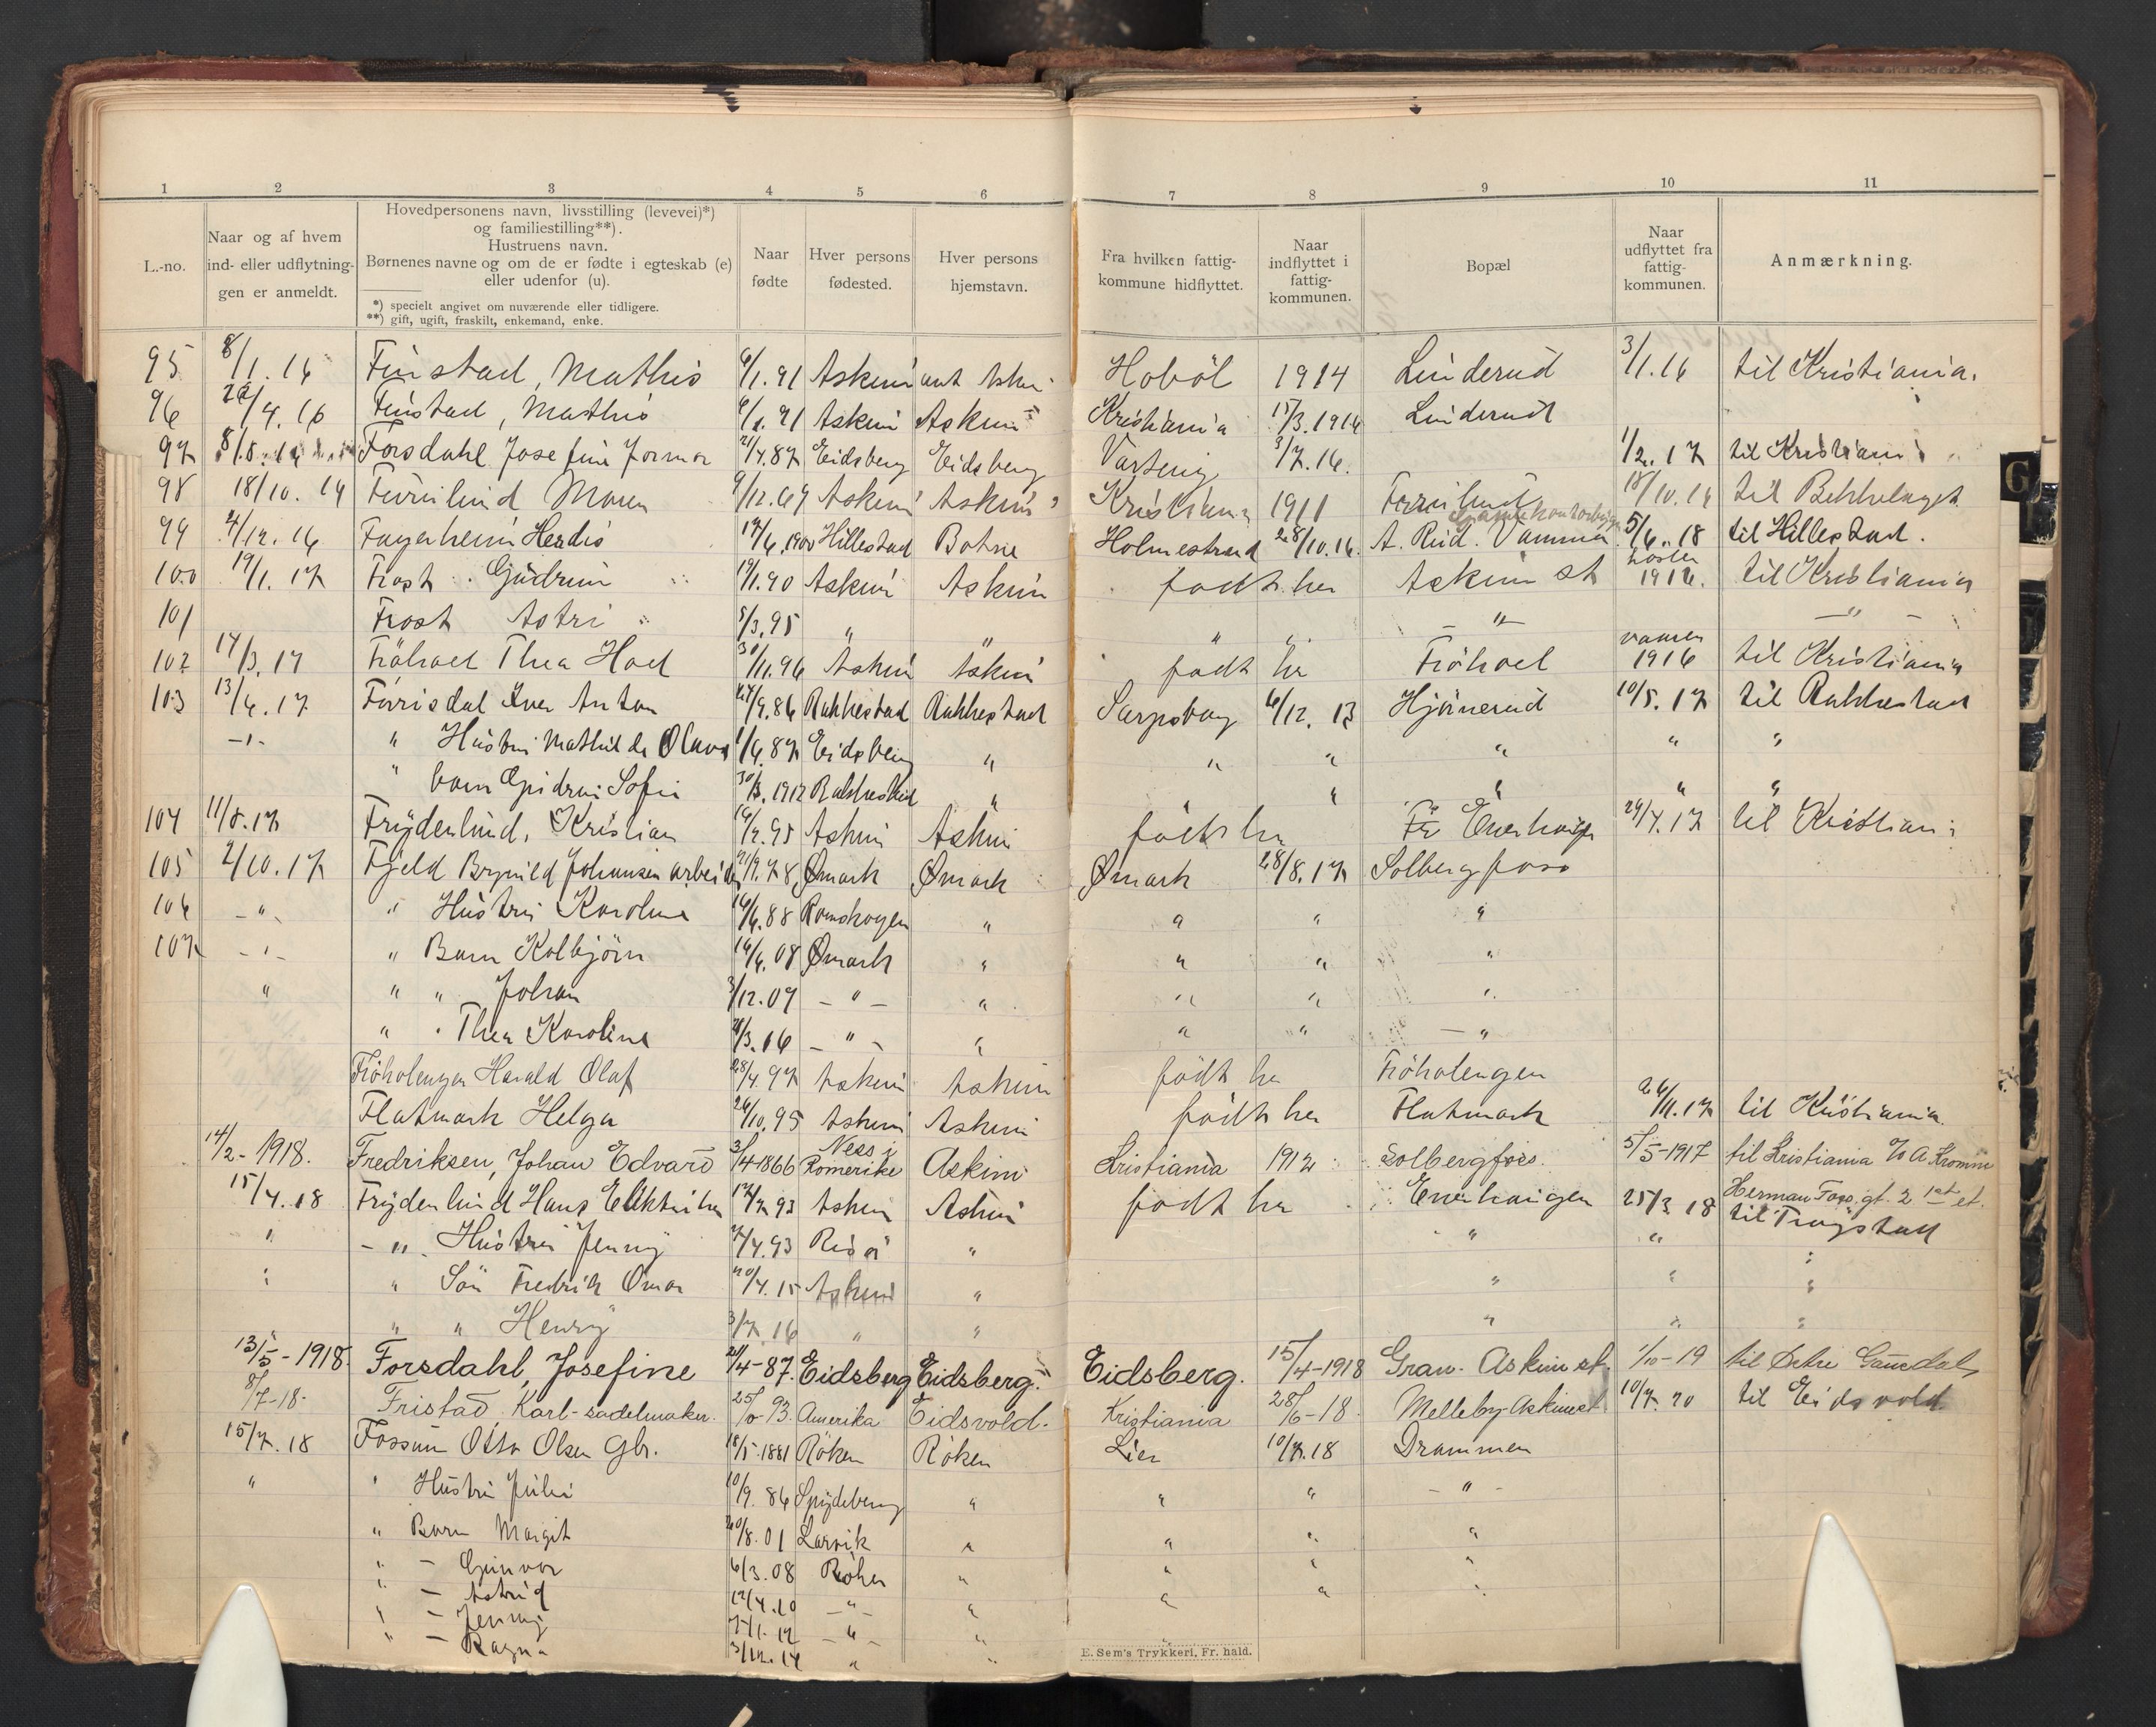 1 2 3 4 5 6 7 8 9 10 11
L.-no.
Naar og af hvem
ind- eller udflytnin-
gen er anmeldt.
Hovedpersonens navn, livsstilling (levevei)*)
og familiestilling**).
Hustruens navn.
Børnenes navne og om de er fødte i egteskab (e)
eller udenfor (u).
*) specielt angivet om nuværende eller tidligere.
**) gift, ugift, fraskilt, enkemand, enke.
Naar
fødte
Hver persons
fødested.
Hver persons
hjemstavn.
Fra hvilken fattig-
kommune hidflyttet.
Naar
indflyttet i
fattig-
kommunen.
Bopæl
Naar
udflyttet fra
fattig-
kommunen.
Anmærkning.
95 8/1.16 Finstad, Mathis 6/1.91 Askim Hobøl 1914 Linderud 3/1.16 til Kristiania.
96 4.16 Finstad, Mathis 91 Askim Askim Kristiania 15/3.1916 Linderud
97 Forsdahl Josefine 21/4.87 Eidsberg Eidsberg 3/7.16. 1/2.17 til Kristiania
98 18/10.14 Maren 9/12.69 Askim Askim Kristiania 1911 18/10.14 til Bekkelaget
99 4/12.16 Fagerheim Herdis 17/6.1900 Hillestad Botne Holmestrand 28/10.16. A. Rud. Vamma 5/6.18 til Hillestad.
100 19/1.17 Frost Gudrun 19/1.90 Askim Askim født her Askim st høsten 1916. til Kristiania
101 Frost Astri 8/3.95 " " " " — " — — " —
102 14/3.17 Frøhoel Thea Hoel 30/11.96 Askim Askim født her Frøhoel 1916 til Kristiania
103 13/6.17 Furrisdal Iver Anton 27/9.86 Rakkestad Rakkestad Sarpsborg 6/12.13 Hjørnerud 10/5.17 til Rakkestad
—"— " Hustru Mathilde Olava 1/6.87 Eidsberg " " " " " "
" barn Gudrun Sofie 30/3.1912 Rakkestad " " " " "
104 11/8.17 Frydenlund, Kristian 16/2.95 Askim Askim født her Enerhaugen 24/7.17 til Kristiania
105 2/10.17 Fjeld Brynild Johansen arbeider 21/9.78 Ømark Ømark Ømark 28/8.17 Solbergfoss
106 —"— " Hustru Karoline 16/6.88 Romskogen " " " "
107 —"— " Barn Kolbjörn 16/6.08 Ømark " " " "
" " " Johan 3/12.09 — " — " " " "
" " Thea Karoline 4/3.16 — " — " " " — "
Frøholengen Harald Olaf 28/4.97 Askim Askim født her Frøholengen
Flatmark Helga 26/10.95 Askim Askim født her Flatmark 26/11.17 til Kristiania.
14/2-1918. Fredriksen, Johan Edvard 3/4 1866 Ness i Romerike Askim Kristiania 1912 Solbergfoss. 5/5-1917 til Kristiania
15/4.18 Frydenlund Hans Elektriker 17/7 93 Askim Askim født her Enerhaugen 25/3 18 Herman Foss gt. 2 1st et.
til Trøgstad
" — " Hustru Jenny 7/4.93 Risør " " " "
" " Søn Fredrik Omar 20/4.15 Askim " " " "
" " Henry 3/7.16 " " " " "
13/5-1918. Forsdahl, Josefine 21/4-87. Eidsberg Eidsberg. Eidsberg. 15/4-1918 Gran. Askim st. 1/10-19 til Østre Gausdal
8/7-18. Fristad Karl - sadelmaker. 25/10-93. Amerika Eidsvold. Kristiania 28/6-18. Melleby Askim st. 10/7.20 til Eidsvold.
15/7.18 Fossum Otto Olsen Gbr. 18/5-1881 Röken Röken Lier 10/7.18 Drammen
" " Hustru Julie 10/9.86 Spydeberg " " " — " —
" Barn Margit 20/8.01 Larvik " " " "
" — Gunvor 6/3.08 Röken " " " "
" — Astrid 12/4.10 — " — " " "
" — Jenny 7/1.12 — " — "
" — Ragna 3/12.14 " "
E. Sem's Trykkeri, Fr. hald.
G